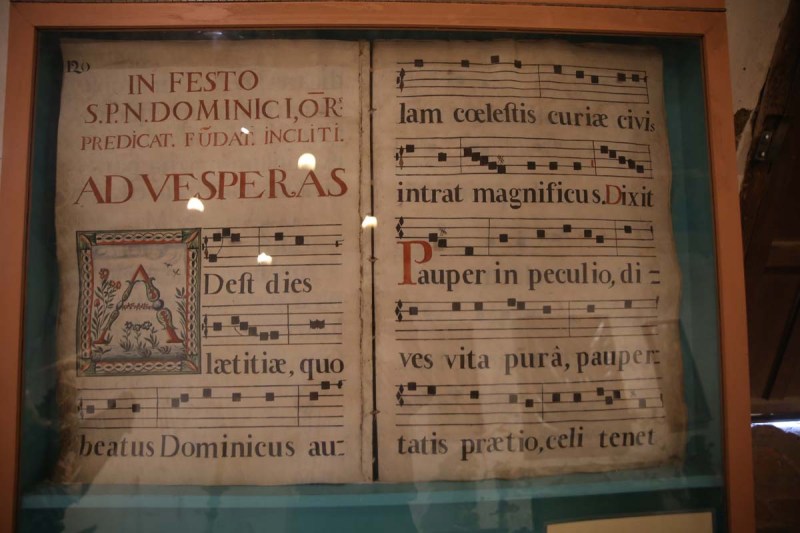 120
IN FESTO
S.P.N. DOMINICI, ŌR:
PREDICAT. FŨDAT. INCLITI.
AD VESPERAS
Adeſt dies
lætitiæ, quo
beatus Dominicus au=
lam cœleſtis curiæ civis
intrat magnificus. Dixit
Pauper in peculio, di=
ves vita purâ, pauper=
tatis prætio, celi tenet